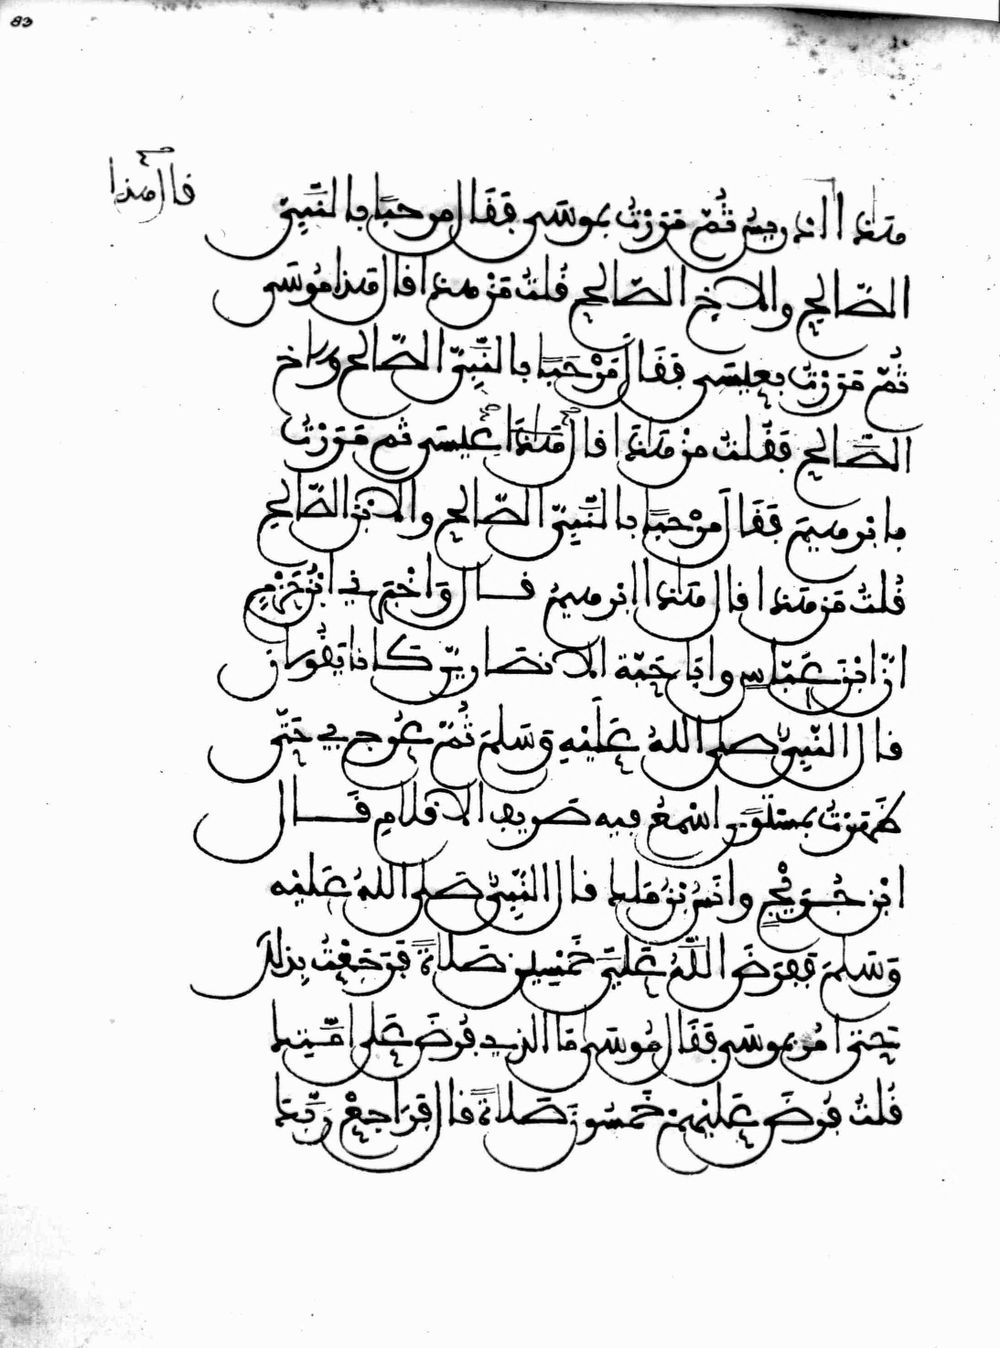 83
قال هذا
هذا ادريس ثُمّ مَرَرْتُ بموسَى فَقَال مرحبًا بالنَّبِيّ
الصّالح والاخ الصّالح قُلتُ مَنْ هذا قال هذا مُوسَى
ثُمّ مَرَرْتُ بعيسَى فَقَال مَرْحَبًا بالنَّبِيّ الصّالح والاخ
الصَّالح فَقُلتُ مَنْ هَذَا قال هَذَا عيسَى ثم مَرَرْتُ
بابرهيمَ فَقَال مَرْحَبًا بالنَّبِيّ الصّالح والابْنِ الصّالح
قُلتُ مَن هَذا قال هَذا ابرهيمُ قال وَاخْبَرَني ابْنُ حَزْمٍ
انّ ابْنَ عَبّاسٍ وابَا حَبّة الانصَاريّ كانا يَقُولان
قال النّبِيُّ صلى اللهُ عَلَيْهِ وَسَلمَ ثُمّ عُرِج بي حَتّى
ظَهَرْتُ بمستَوًى اسْمَعُ فيه صَريف الاقلام قَال
ابْن حَزْمٍ وانَسُ بْنُ مَلك قال النَّبِيّ صَلى اللهُ عَليْه
وَسَلمَ فَفرَضَ اللَّهُ عَليّ خَمْسِين صَلاةً فَرَجَعْتُ بِذلك
حتى امُرّ بموسَى فَقَال مُوسَى مَا الذي فُرضَ عَلى امّتِك
قُلتُ فُرضَ عَليْهمْ خَمسُونَ صَلاةً قال فرَاجِعْ رَبّكَ